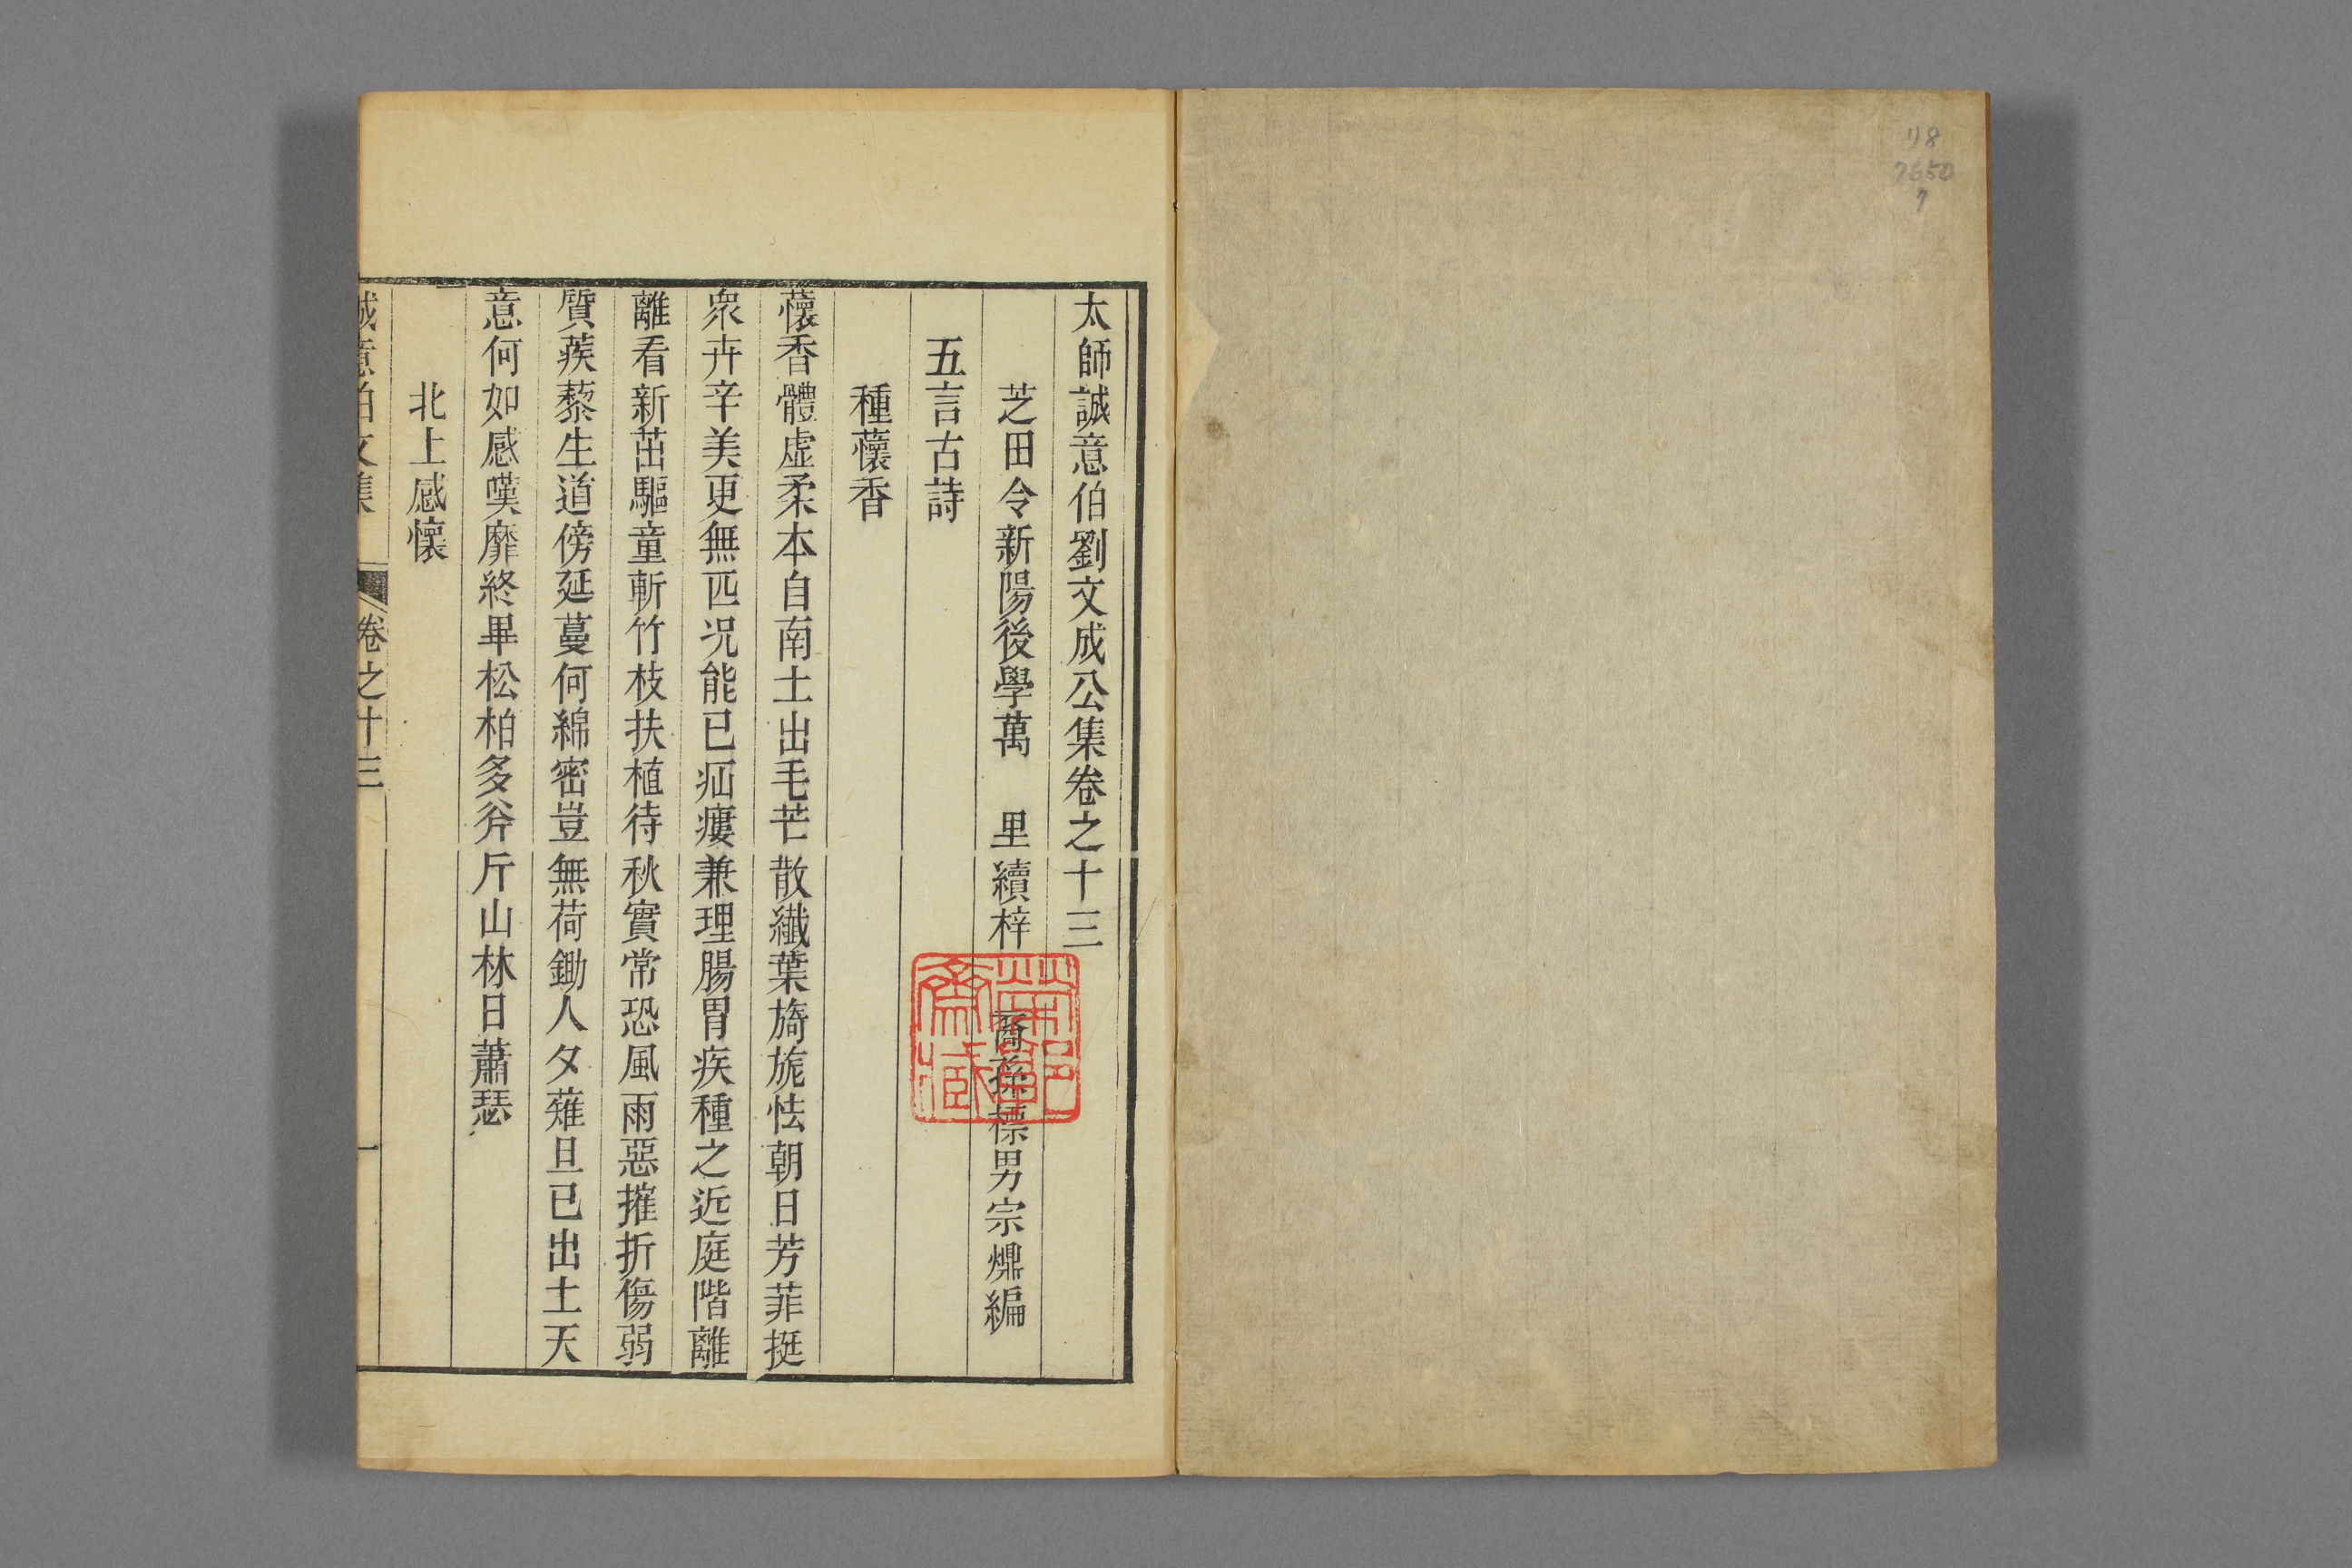 太師誠意伯劉文成公集卷之十三
芝田令新陽後學萬 里續梓 裔孫標男宗㷂編
五言古詩
種蘹香
蘹香體虛柔本自南土出毛芒散纖葉旖旎怯朝日芳菲挺
衆卉辛美更無匹况能已疝瘻兼理腸胃疾種之近庭階離
離看新茁驅童斬竹枝扶植待秋實常恐風雨惡摧折傷弱
質蒺藜生道傍延蔓何綿密豈無荷鋤人夕薙旦已出土天
意何如感嘆靡終畢松柏多斧斤山林日蕭瑟
北上感懷
誠意伯文集 卷之十三 一
り8
7650
7